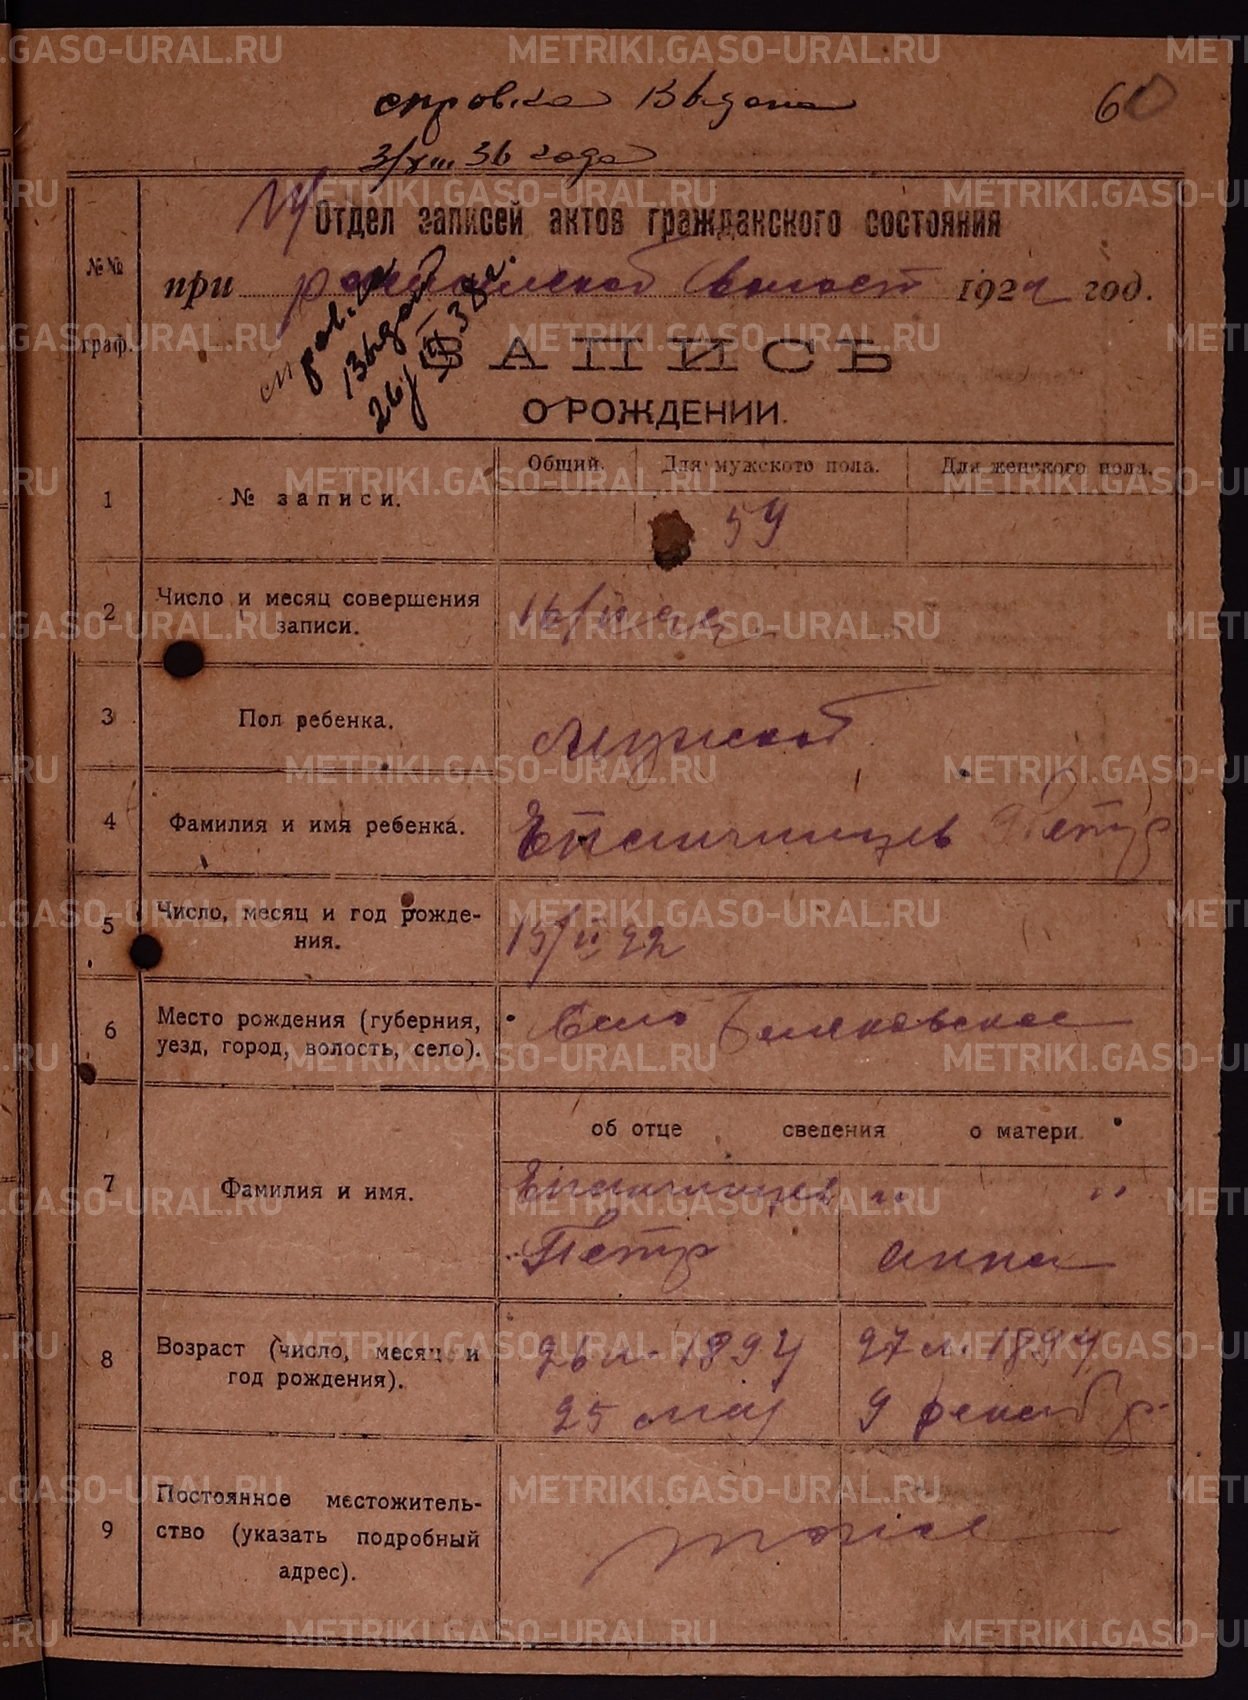 METRIKI.GASO-URAL.RU
справка Выдана
60
3/VIII 36 года
Отдел записей актов гражданского состояния
при волост 1922 год.
справка
Выдана
ЗАПИСЬ
О РОЖДЕНИИ.
№№
граф.
Общий. Для мужского пола. Для женского пола.
1 № записи. 59
2 Число и месяц совершения
записи.
16/II 22
3 Пол ребенка. Мужской
4 Фамилия и имя ребенка. Петр
5 Число, месяц и год рожде-
ния.
15/II 22
6 Место рождения (губерния,
уезд, город, волость, село).
Село Беляковское
об отце сведения о матери.
7 Фамилия и имя.
Петр Анна
8 Возраст (число, месяц и
год рождения).
26 л. 1894 27 л. 1894
25 мая 9 декабр
9 Постоянное местожитель-
ство (указать подробный
адрес).
тоже